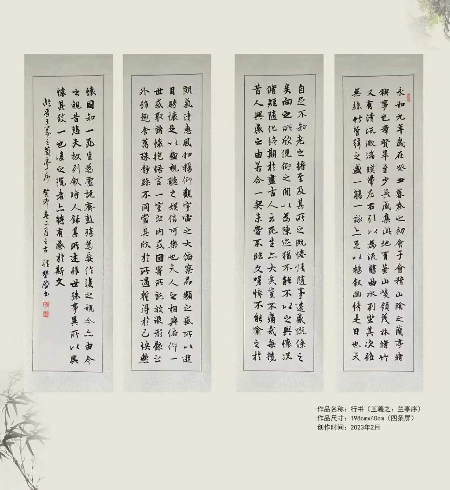 永和九年歲在癸丑暮春之初會于會稽山陰之蘭亭脩
禊事也群賢畢至少長咸集此地有崇山峻領茂林脩竹
又有清流激湍暎帶左右引以為流觴曲水列坐其次雖
無絲竹管弦之盛一觴一詠亦足以暢敘幽情是日也天
自足不知老之將至及其所之既惓情隨事遷感慨係之
矣向之所欣俛仰之間以為陳迹猶不能不以之興懷況
脩短隨化終期於盡古人云死生亦大矣豈不痛哉每攬
昔人興感之由若合一契未嘗不臨文嗟悼不能喻之於
朗氣清惠風和暢仰觀宇宙之大俯察品類之盛所以遊
目騁懷足以極視聽之娛信可樂也夫人之相與俯仰一
世或取諸懷抱悟言一室之內或因寄所託放浪形骸之
外雖趣舍萬殊靜躁不同當其欣於所遇暫得於己快然
懷固知一死生為虛誕齊彭殤為妄作後之視今亦由今
之視昔悲夫故列敘時人錄其所述雖世殊事異所以興
懷其致一也後之攬者亦將有感於斯文
王羲之蘭亭序 癸卯年二月
作品名称：行书（王羲之：兰亭序）
作品尺寸：198cmx40cm（四条屏）
创作时间：2023年2月